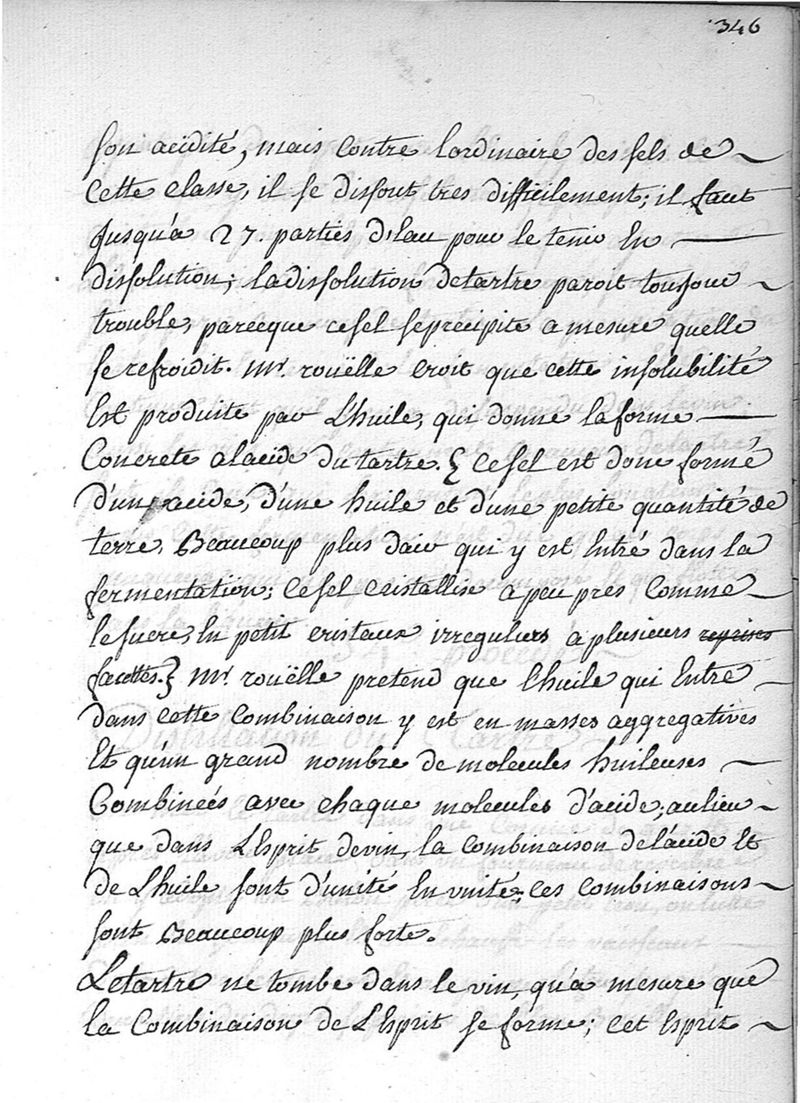 346
son acidité, mais contre lordinaire des sels de
cette classe, il se disout tres difficilement; il faut
Jusqu'a 27. parties d'eau pour le tenir En
dissolution; la dissolution detartre paroit toujour
trouble, parceque cesel seprécipite a mesure quelle
se refroidit. Mr. rouëlle croit que cette insolubilité
Est produite par L'huile, qui donne la forme
Concrete a lacide du tartre. } cesel est donc formé
d'un acide, d'une huile et d'une petite quantité de
terre, Beaucoup plus dair qui y est Entré dans la
fermentation; cesel cristallise a peu pres comme
le sucre, En petit cristaux irreguliers à plusieurs reprises
facettes. } Mr. rouëlle pretend que L'huile qui Entre
dans cette combinaison y est en masses aggregatives
Et qu'un grand nombre de molecules huileuses
Combineés avec chaque molecules d'acide; aulieu
que dans L'Esprit devin, la combinaison de l'acide Et
de L'huile sont d'unité En unité; ces combinaisons
sont Beaucoup plus forte.
Letartre ne tombe dans le vin, qu'a mesure que
la Combinaison de L'Esprit se forme; cet Esprit